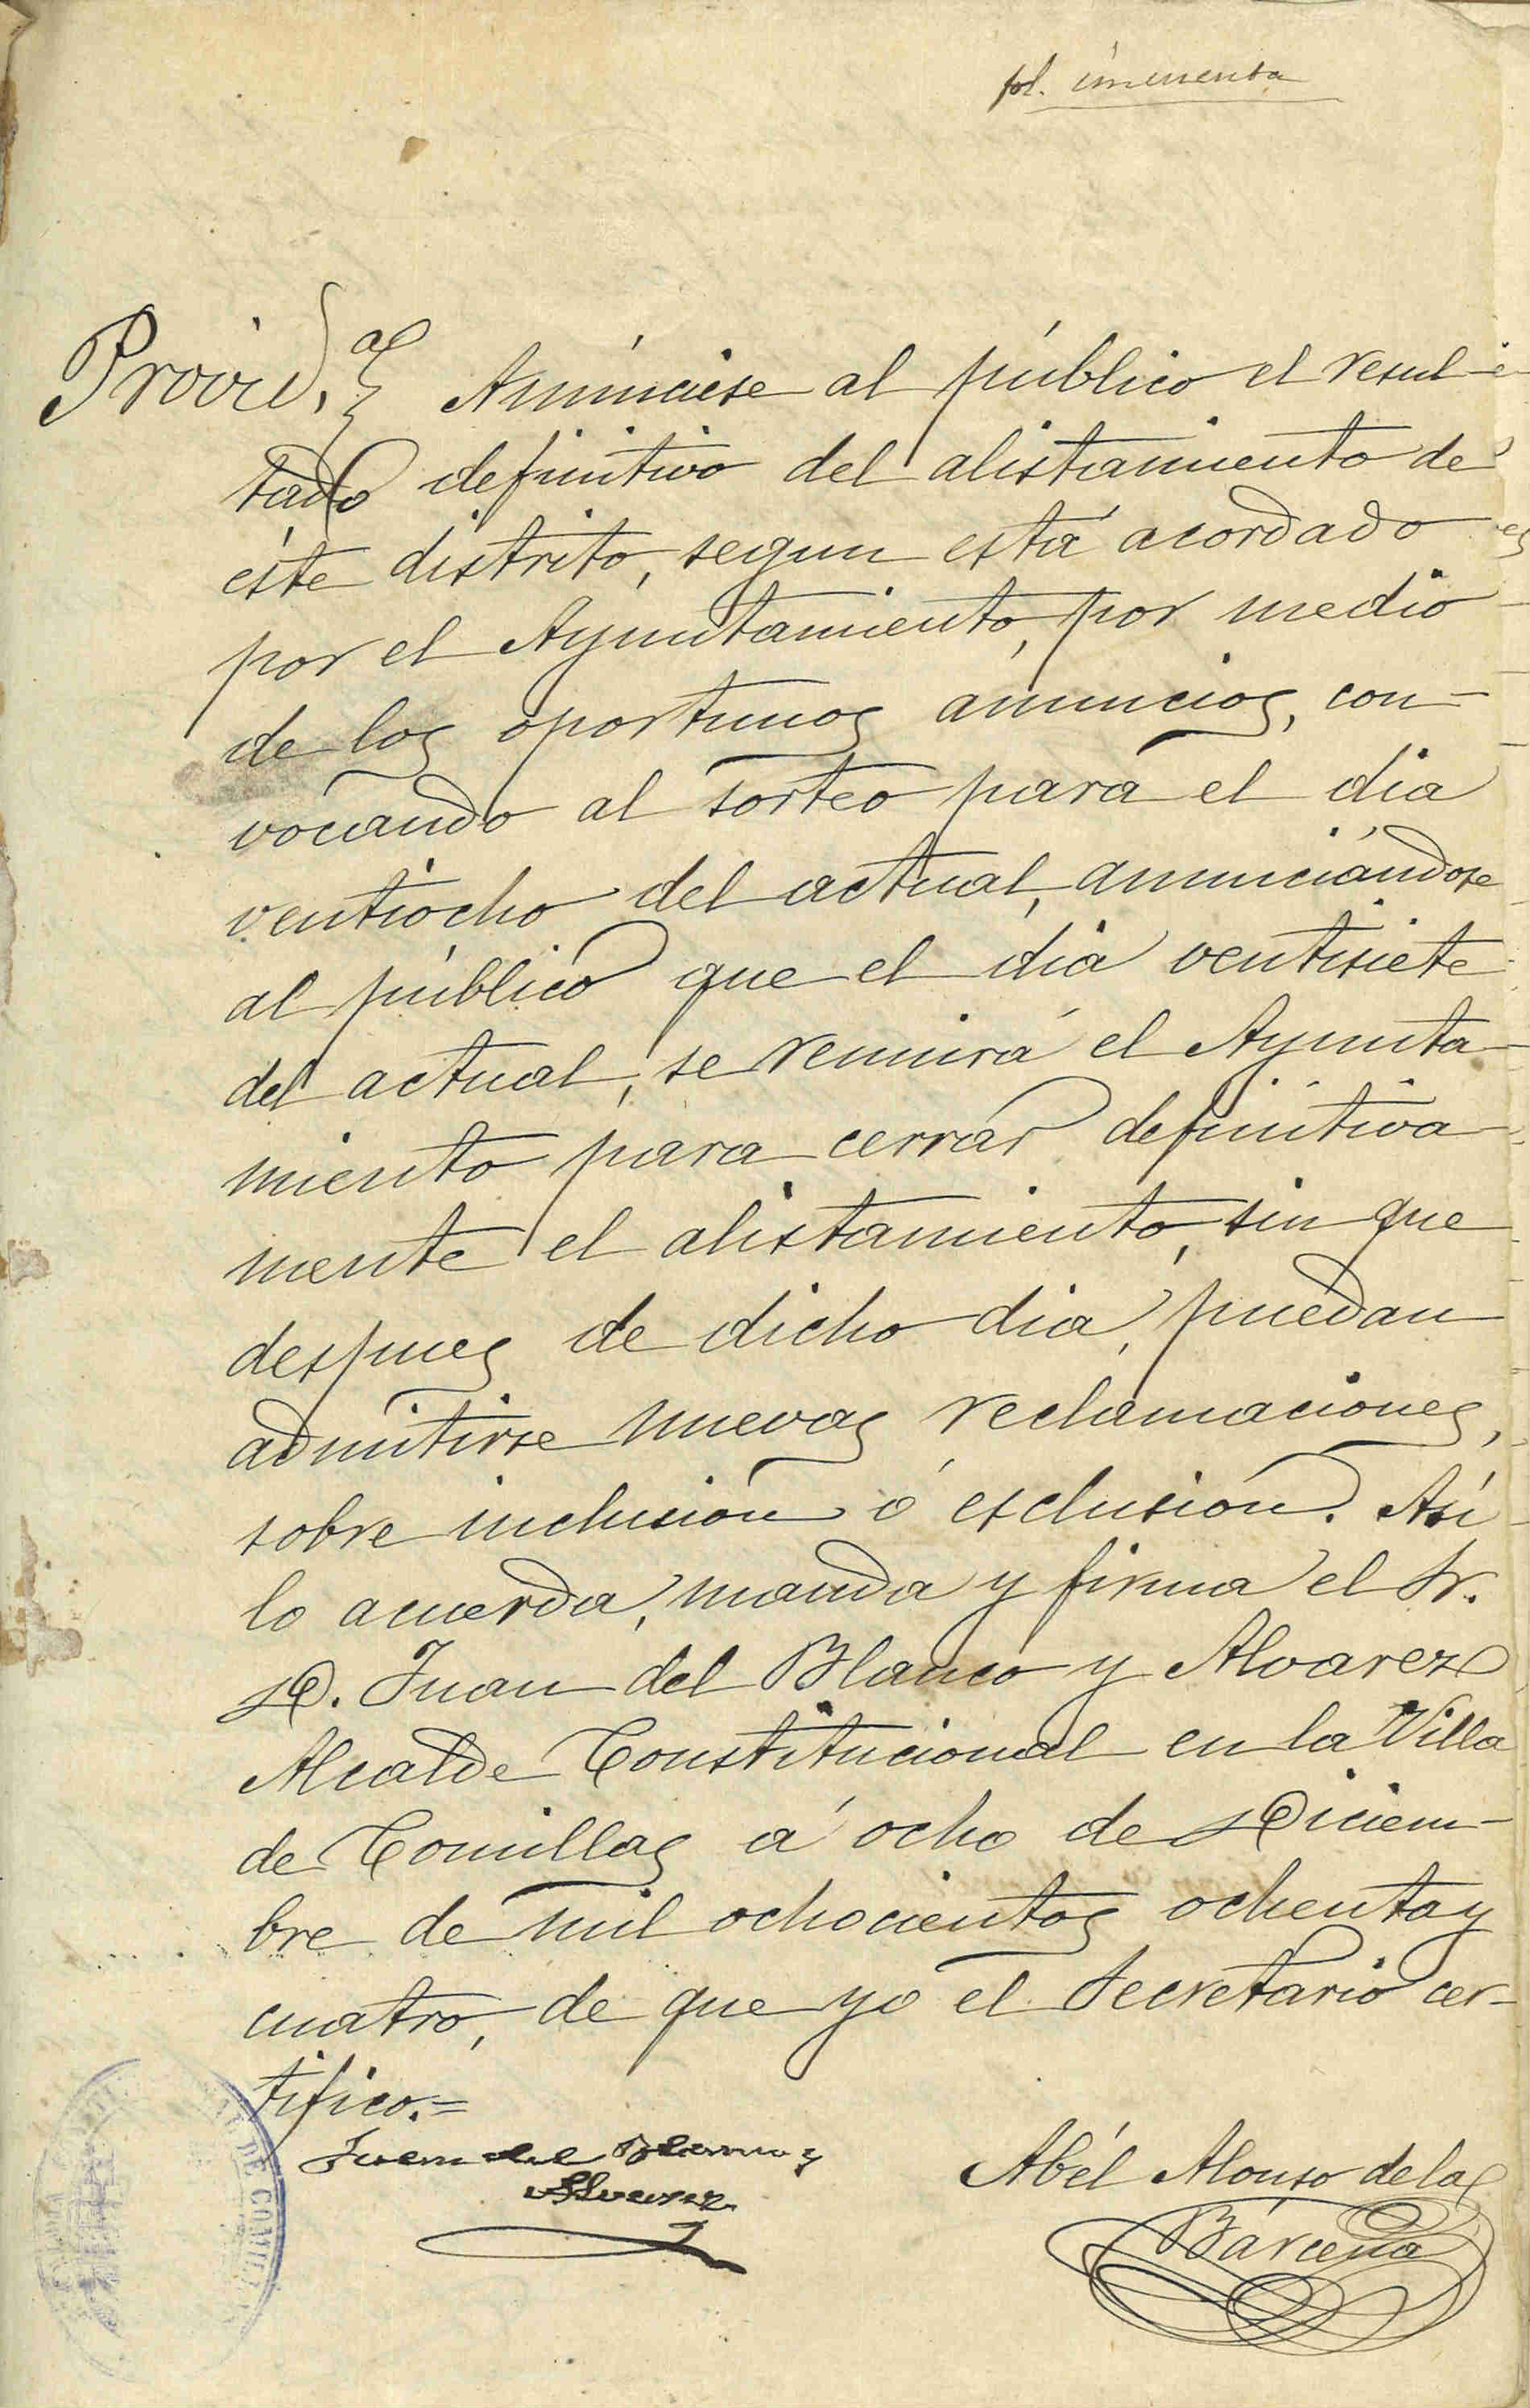 fol. cincuenta
Provid.ª Anúnciese al público el resul-
tado definitivo del alistamiento de
éste distrito, segun está acordado
por el Ayuntamiento, por medio
de los oportunos anuncios, con-
vocando al sorteo para el dia
ventiocho del actual, anunciándose
al público que el dia ventisiete
del actual, se reunirá el Ayunta-
miento para cerrar definitiva-
mente el alistamiento, sin que
despues de dicho dia, puedan
admitirse nuevas reclamaciones,
sobre inclusión ó esclusión. Así
lo acuerda, manda y firma el Sr.
D. Juan del Blanco y Alvarez
Alcalde Constitucional en la Villa
de Comillas á ocho de Diciem-
bre de mil ochocientos ochenta y
cuatro, de que yo el Secretario cer-
tifico.=
Juan del Blanco y
Alvarez
Abél Alonso de la
Bárcena
DE COMILLAS